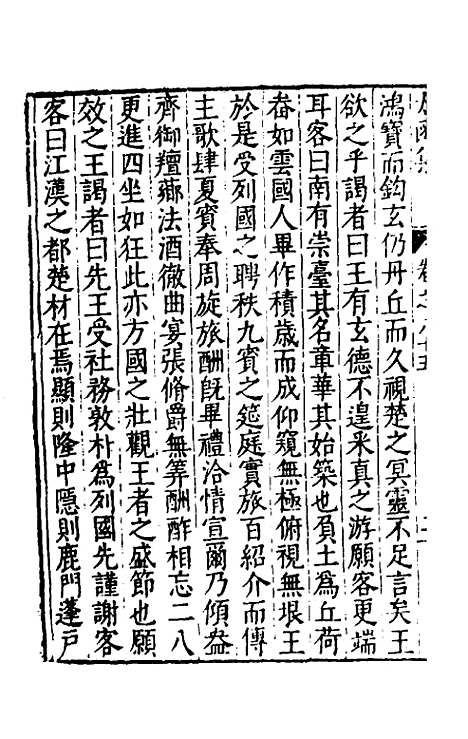 鴻寶而鈎玄仍丹丘而久視楚之冥靈不足言矣王
欲之乎謁者曰王有玄德不遑釆真之游願客更端
耳客曰南有崇臺其名章華其始築也負土為丘荷
畚如雲國人畢作積歲而成仰窺無極俯視無垠王
於是受列國之聘秩九賓之筵庭實旅百紹介而傳
主歌肆夏賓奉周旋旅酬旣畢禮洽情宣爾乃傾盎
齊御羶薌法酒徹曲宴張脩爵無筭酬酢相忘二八
更進四坐如狂此亦方國之壯觀王者之盛節也願
效之王謁者曰先王受社務敦朴為列國先謹謝客
客曰江漢之都楚材在焉顯則隆中隱則鹿門蓬戶